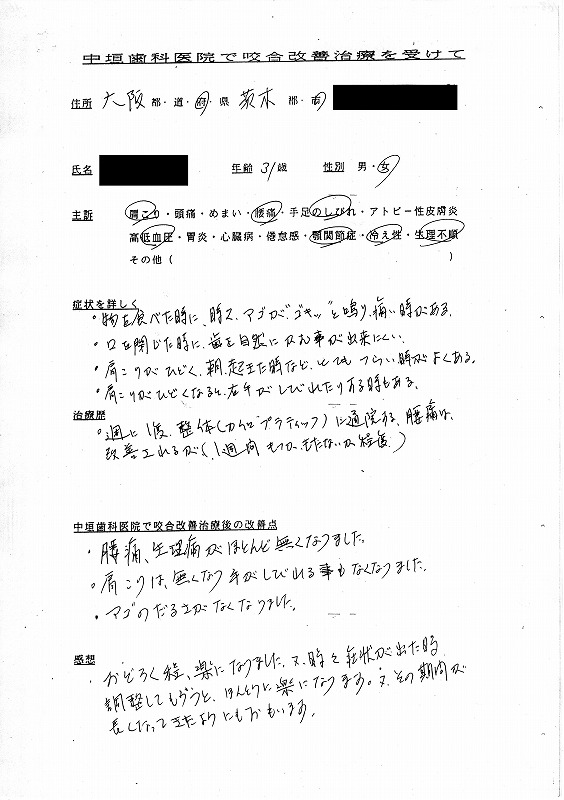 中垣歯科医院で咬合改善治療を受けて
住所 大阪 都・道・府・県 茨木 郡・市
氏名 年齢 31歳 性別 男・女
主訴 肩こり・頭痛・めまい・腰痛・手足のしびれ・アトピー性皮膚炎
高低血圧・胃炎・心臓病・倦怠感・顎関節症・冷え性・生理不順
その他( )
症状を詳しく
・物を食べた時に、時々、アゴが"ゴキッ"と鳴り、痛い時がある。
・口を閉じた時に、歯を自然にかむ事が出来にくい。
・肩こりがひどく、朝、起きた時など、とてもつらい時がよくある。
・肩こりがひどくなると、左手がしびれたりする時もある。
治療歴
・週に1度、整体(カイロプラティック)に通院する、腰痛は、
改善されるが(1週間もつか、もたないか程度)
中垣歯科医院で咬合改善治療後の改善点
・腰痛、生理痛がほとんど無くなりました。
・肩こりは、無くなり手がしびれる事もなくなりました。
・アゴのだるさがなくなりました。
感想
・おどろく程、楽になりました。又、時々症状が出た時
調整してもらうと、ほんとうに楽になります。又、その期間が
長くなってきたようにもおもいます。